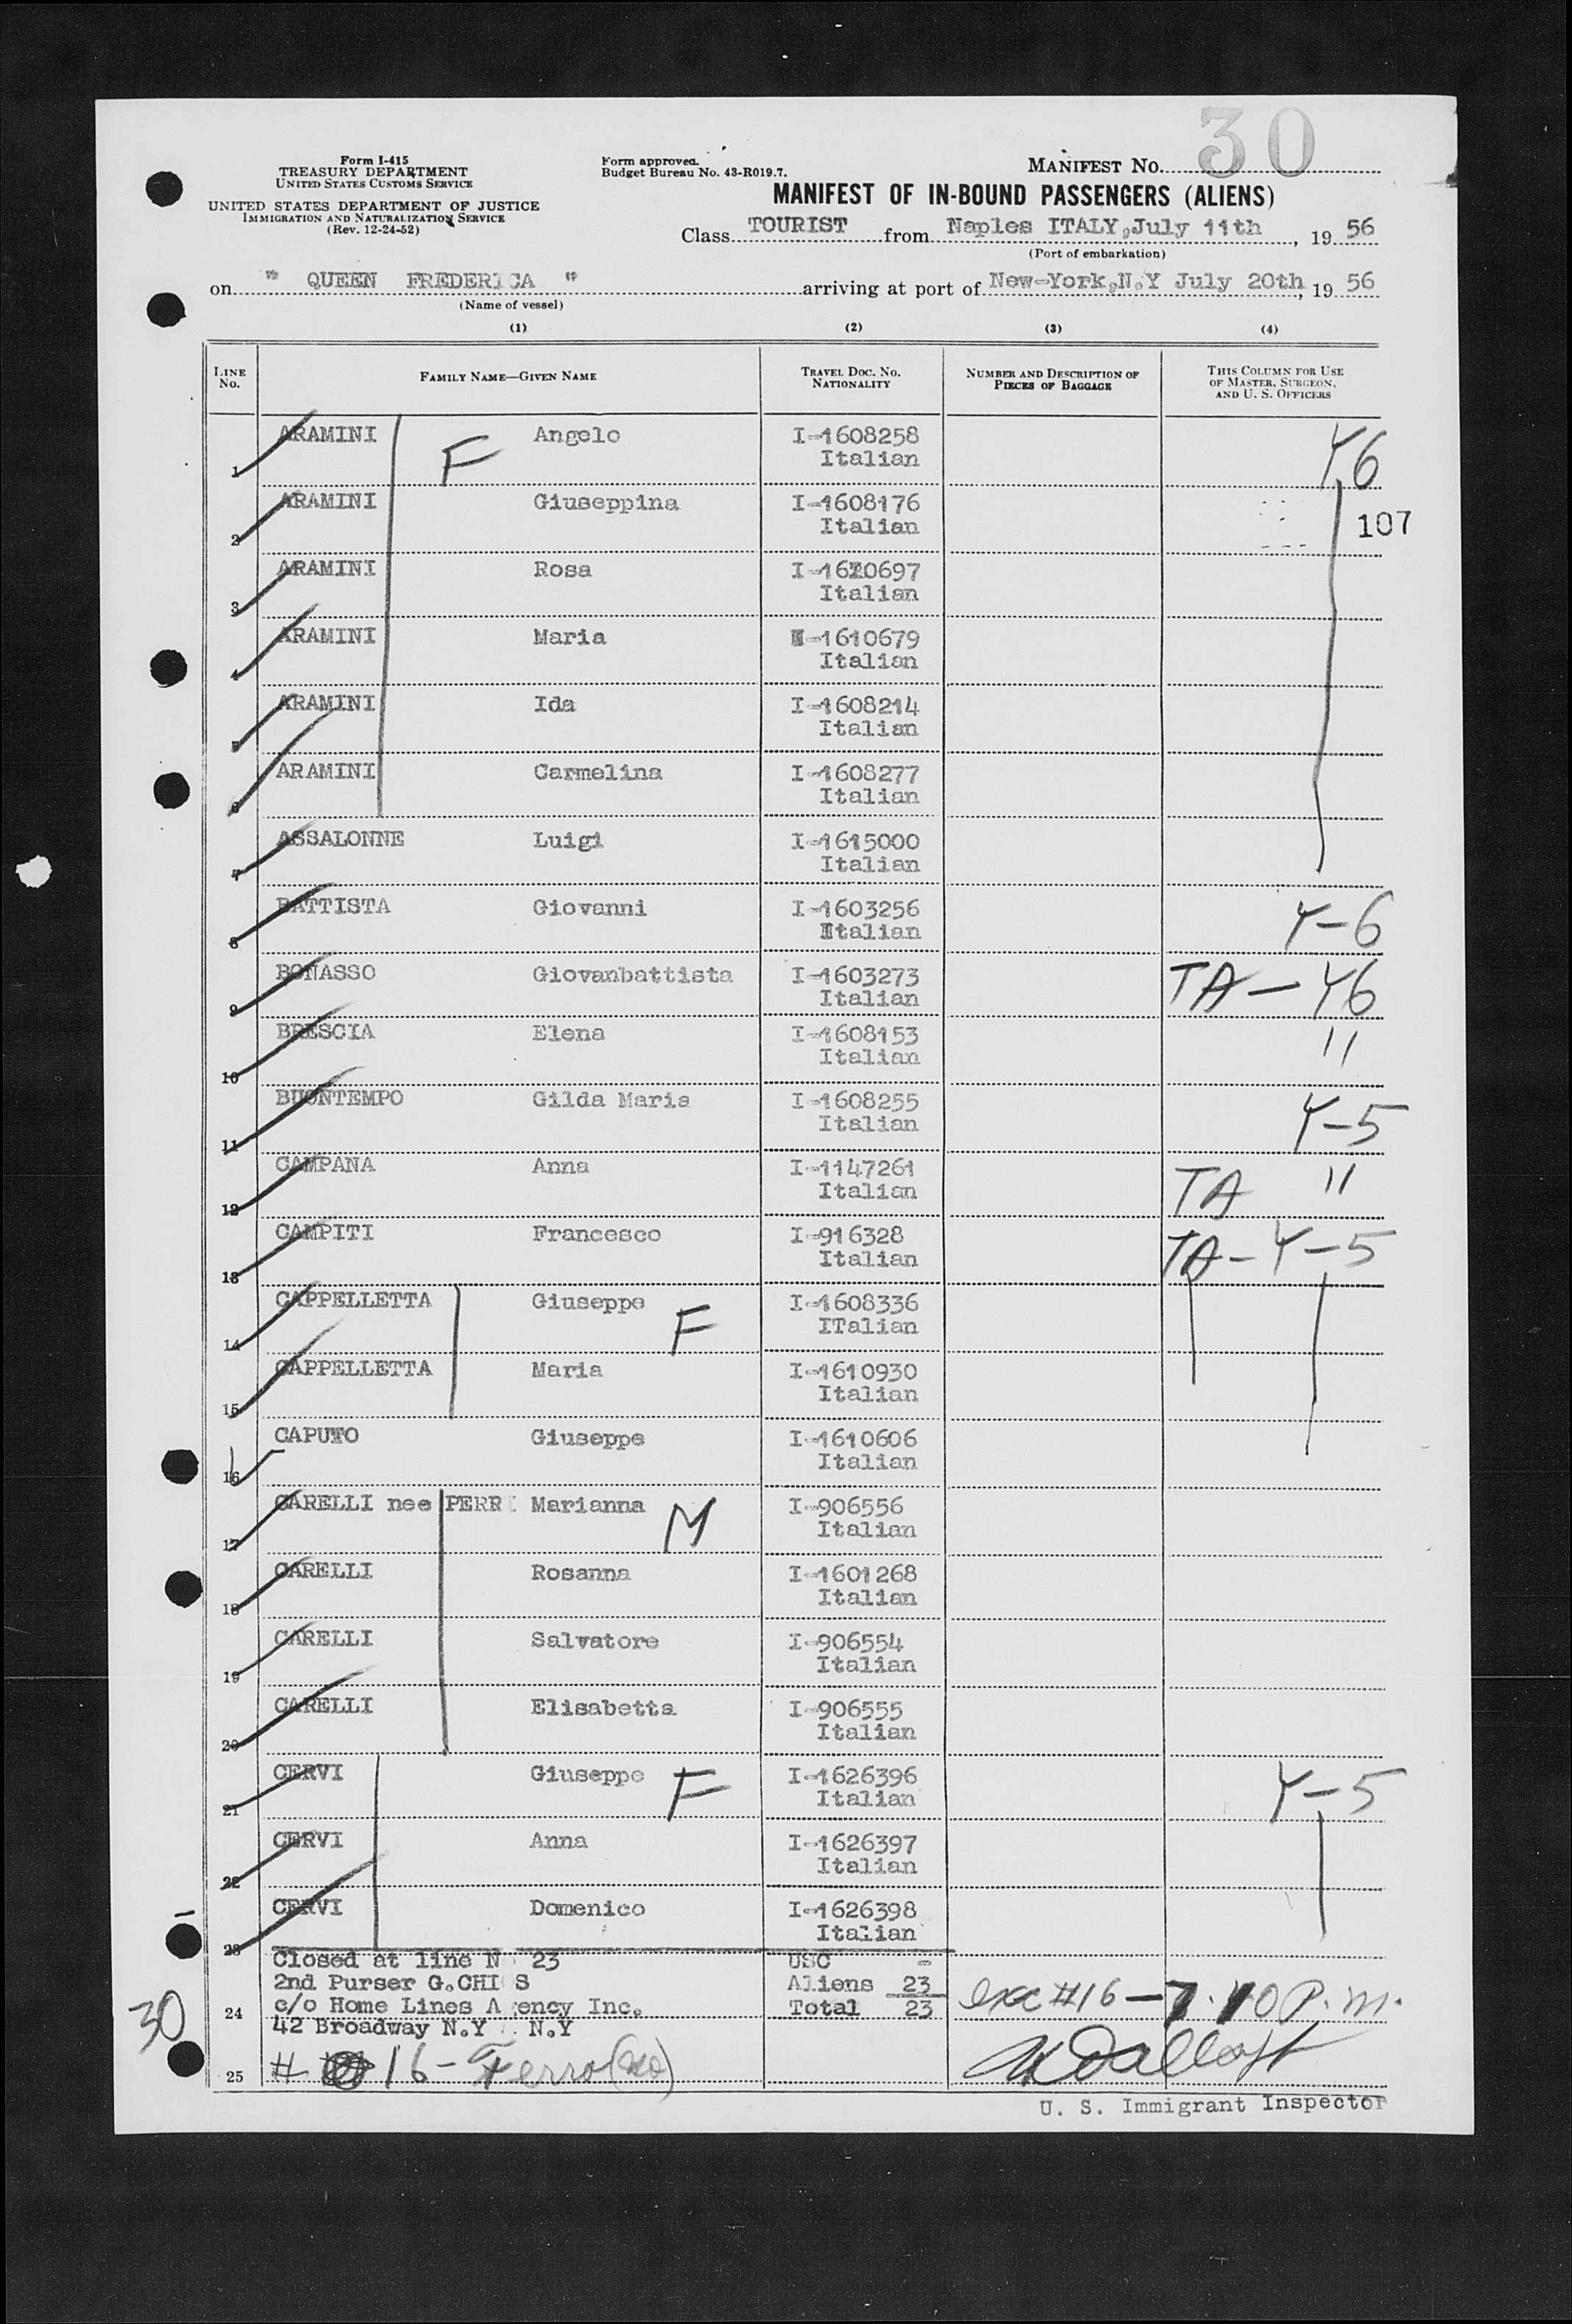 30
Form I-415
TREASURY DEPARTMENT
UNITED STATES CUSTOMS SERVICE
UNITED STATES DEPARTMENT OF JUSTICE
IMMIGRATION AND NATURALIZATION SERVICE
(Rev. 12-24-52)
Form approved.
Budget Bureau No. 43-R019.7.
MANIFEST NO.
MANIFEST OF IN-BOUND PASSENGERS (ALIENS)
Class TOURIST from Naples ITALY, July 11th, 19 56
(Port of embarkation)
on " QUEEN FREDERICA " arriving at port of New-York, N.Y July 20th, 19 56
(Name of vessel)
(1) (2) (3) (4)
LINE NO. FAMILY NAME—GIVEN NAME TRAVEL DOC. NO. NATIONALITY NUMBER AND DESCRIPTION OF PIECES OF BAGGAGE THIS COLUMN FOR USE OF MASTER, SURGEON, AND U. S. OFFICERS
1 ARAMINI F Angelo I-1608258 Italian Y6
2 ARAMINI Giuseppina I-1608176 Italian 107
3 ARAMINI Rosa I-1610697 Italian
4 ARAMINI Maria I-1610679 Italian
5 ARAMINI Ida I-1608214 Italian
6 ARAMINI Carmelina I-1608277 Italian
7 ASSALONNE Luigi I-1615000 Italian
8 BATTISTA Giovanni I-1603256 Italian Y-6
9 BONASSO Giovanbattista I-1603273 Italian TA - Y6
10 BRESCIA Elena I-1608153 Italian "
11 BUONTEMPO Gilda Maria I-1608255 Italian Y-5
12 CAMPANA Anna I-1147261 Italian TA "
13 CAMPITI Francesco I-916328 Italian TA - Y-5
14 CAPPELLETTA Giuseppe F I-1608336 ITalian
15 CAPPELLETTA Maria I-1610930 Italian
16 CAPUTO Giuseppe I-1610606 Italian
17 CARELLI nee PERRI Marianna M I-906556 Italian
18 CARELLI Rosanna I-1601268 Italian
19 CARELLI Salvatore I-906554 Italian
20 CARELLI Elisabetta I-906555 Italian
21 CERVI Giuseppe F I-1626396 Italian Y-5
22 CERVI Anna I-1626397 Italian
23 CERVI Domenico I-1626398 Italian
Closed at line N 23 USC -
2nd Purser G.CHI S Aliens 23
30 24 c/o Home Lines Agency Inc. Total 23 exc #16 - 7.10 P.m.
42 Broadway N.Y N.Y
25 # 16 - Ferro
U. S. Immigrant Inspector